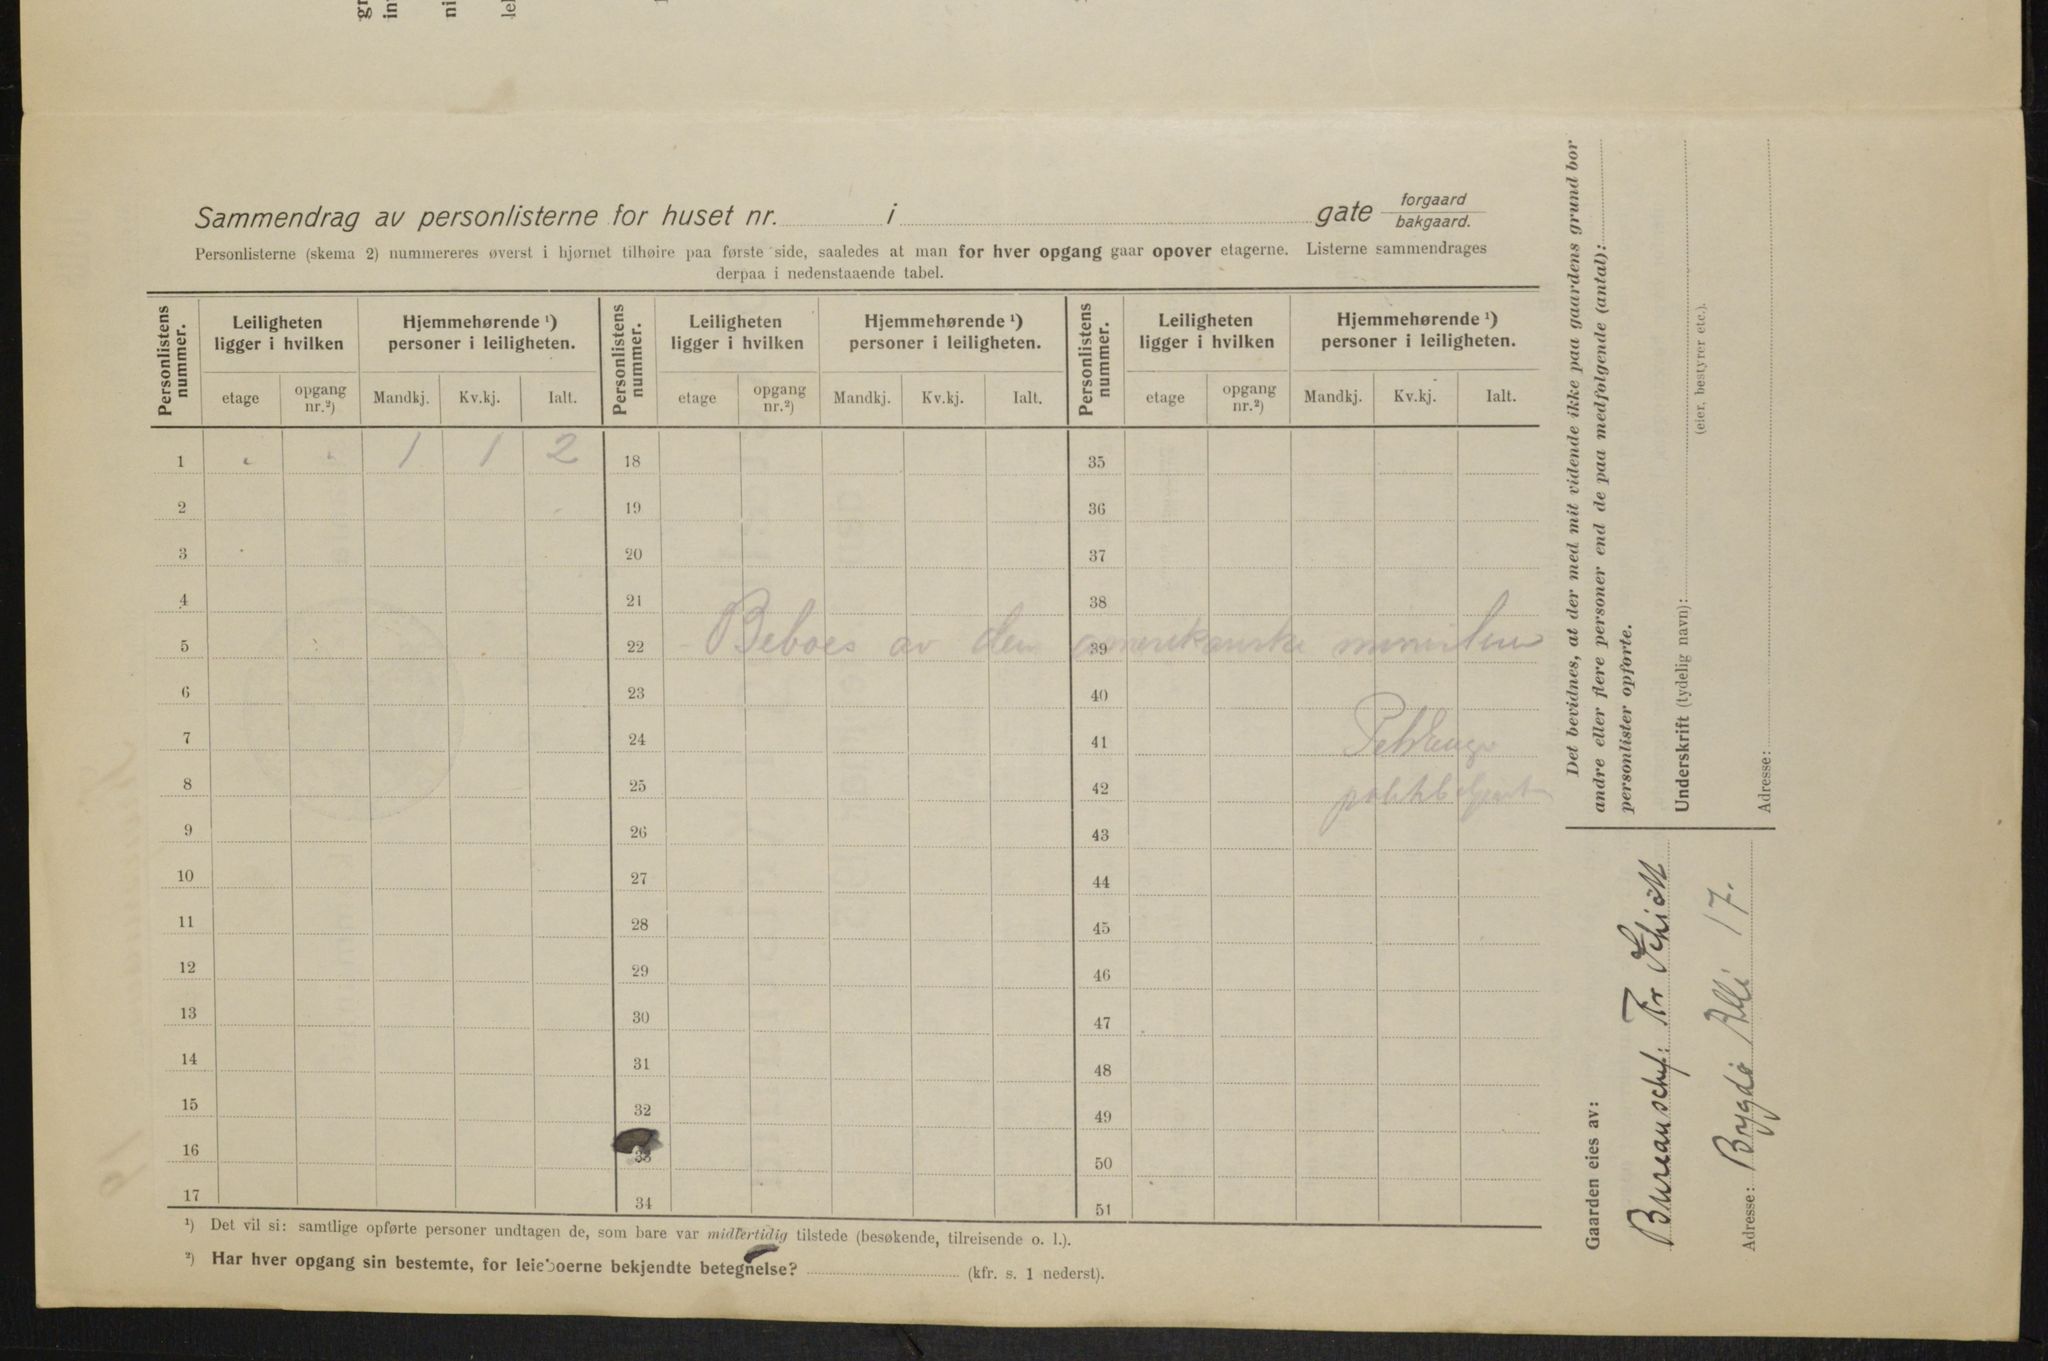 Sammendrag av personlisterne for huset nr. i gate forgaard
bakgaard.
Personlisterne (skema 2) nummereres øverst i hjørnet tilhøire paa første side, saaledes at man for hver opgang gaar opover etagerne. Listerne sammendrages
derpaa i nedenstaaende tabel.
Personlistens nummer. Leiligheten ligger i hvilken Hjemmehørende ¹) personer i leiligheten. Personlistens nummer. Leiligheten ligger i hvilken Hjemmehørende ¹) personer i leiligheten. Personlistens nummer. Leiligheten ligger i hvilken Hjemmehørende ¹) personer i leiligheten.
etage opgang nr.²) Mandkj. Kv.kj. Ialt. etage opgang nr.²) Mandkj. Kv.kj. Ialt. etage opgang nr.²) Mandkj. Kv.kj. Ialt.
1 " " 1 1 2 18 35
2 19 36
3 20 37
4 21 38
5 22 39
Beboes av den amerikanske minister
6 23 40
7 24 41
8 25 42
9 26 43
10 27 44
11 28 45
12 29 46
13 30 47
14 31 48
15 32 49
16 33 50
17 34 51
¹) Det vil si: samtlige opførte personer undtagen de, som bare var midlertidig tilstede (besøkende, tilreisende o. l.).
²) Har hver opgang sin bestemte, for leieboerne bekjendte betegnelse? (kfr. s. 1 nederst).
Det bevidnes, at der med mit vidende ikke paa gaardens grund bor
andre eller flere personer end de paa medfølgende (antal):
personlister opførte.
Underskrift (tydelig navn):
(eier, bestyrer etc.).
Adresse:
Gaarden eies av:
Bureauschef. Fr Schiøtt
Adresse: Bygdø Allé 17.